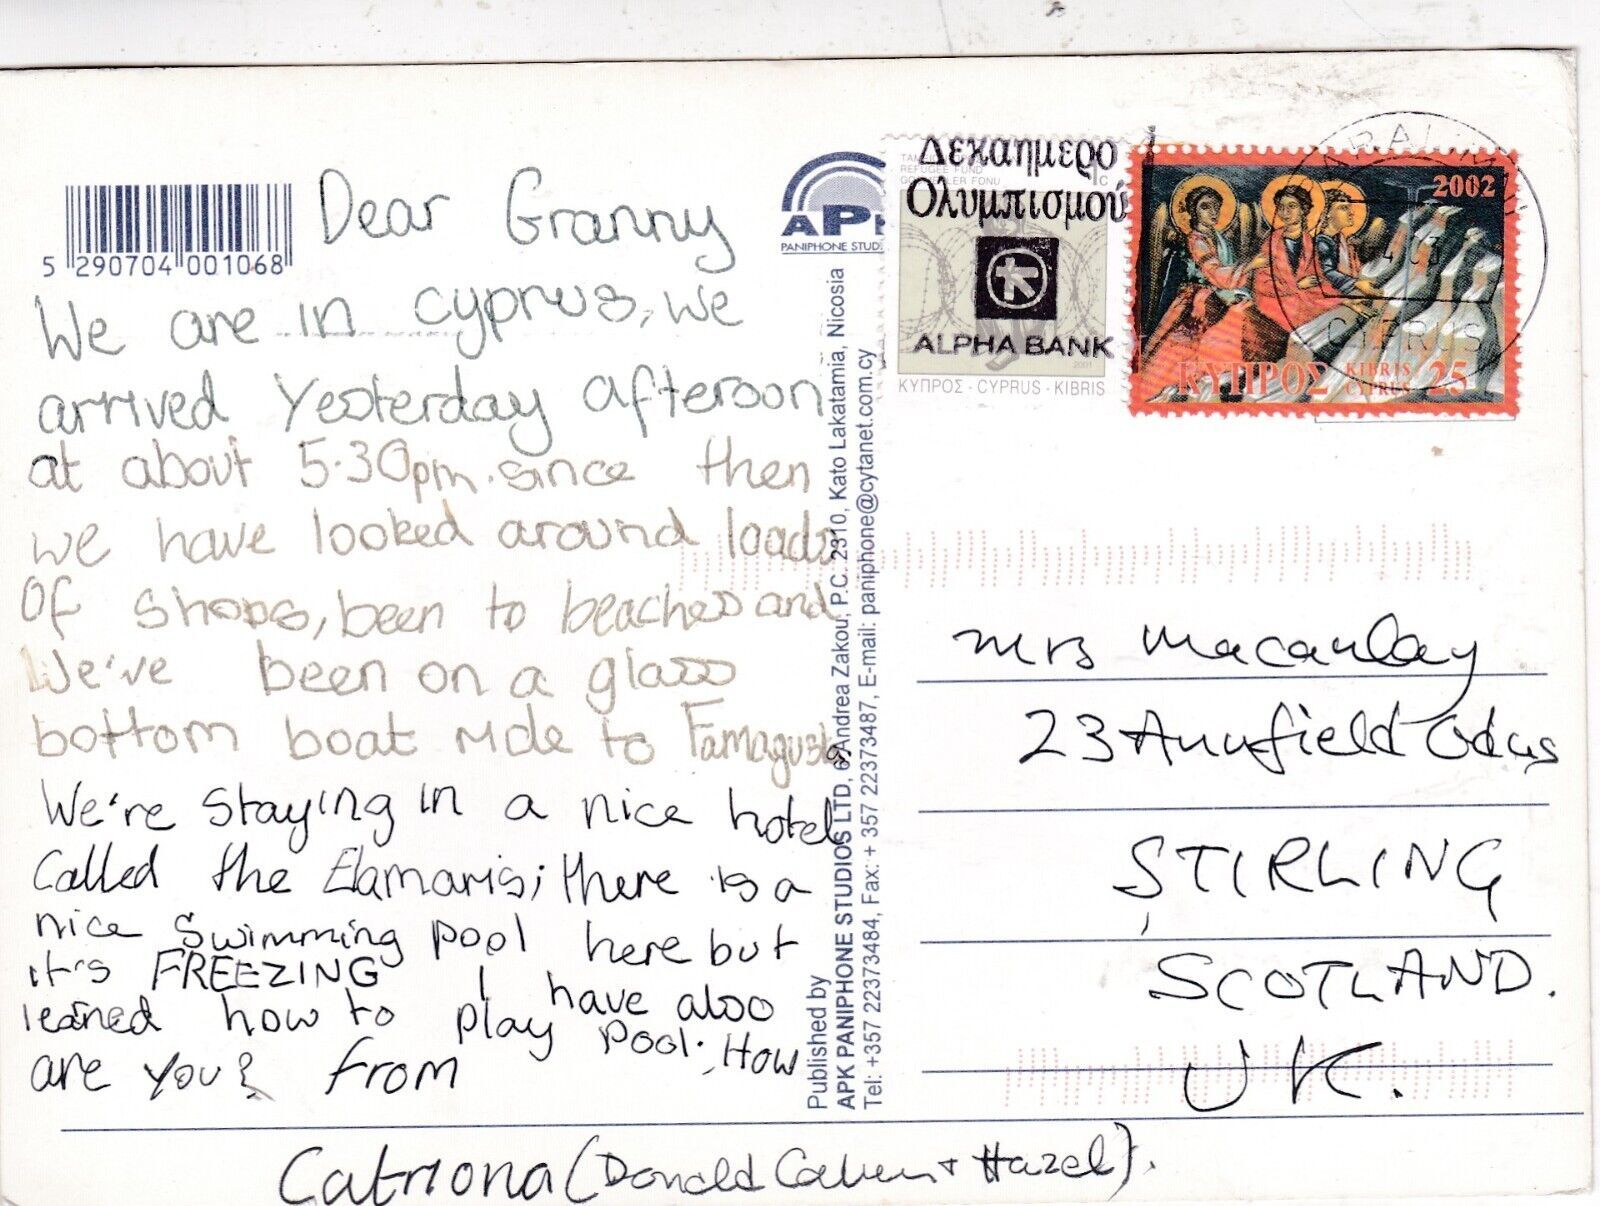 5 290704 001068
Dear Granny
We are in cyprus, we
arrived Yesterday afternoon
at about 5.30pm. since then
we have looked around loads
Of shops, been to beaches and
We've been on a glass
bottom boat ride to Famagusta
We're staying in a nice hotel
Called the Elamaris; there is a
nice swimming pool here but
it's FREEZING I have also
learned how to play pool. How
are you? from
Catriona (Donald + Hazel).
APK
PANIPHONE STUDI
Published by
APK PANIPHONE STUDIOS LTD, 6 Andrea Zakou, P.C. 2310, Kato Lakatamia, Nicosia
Tel: +357 22373484, Fax: + 357 22373487, E-mail: paniphone@cytanet.com.cy
Δεκαημερο
Ολυμπισμού
REFUGEE FUND
ALPHA BANK
2001
ΚΥΠΡΟΣ - CYPRUS - KIBRIS
2002
ΚΥΠΡΟΣ KIBRIS CYPRUS 25
PARALIMNI
CYPRUS
Mrs Macaulay
23 Annfield Gdns
STIRLING
SCOTLAND.
UK.